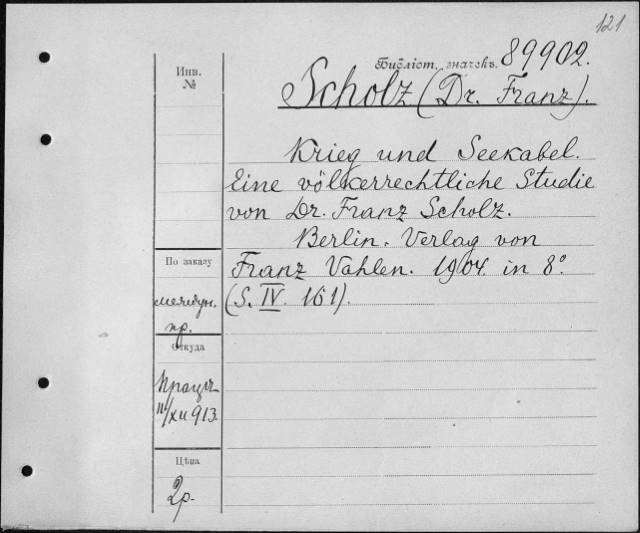 121
Библіот. значекъ. 89902.
Scholz (Dr. Franz).
Инв.
№
Krieg und Seekabel.
Eine völkerrechtliche Studie
von Dr. Franz Scholz.
Berlin. Verlag von
Franz Vahlen. 1904. in 8º
(S. IV. 161).
По заказу
пр.
Откуда
11/XII 913.
Цѣна
2р.